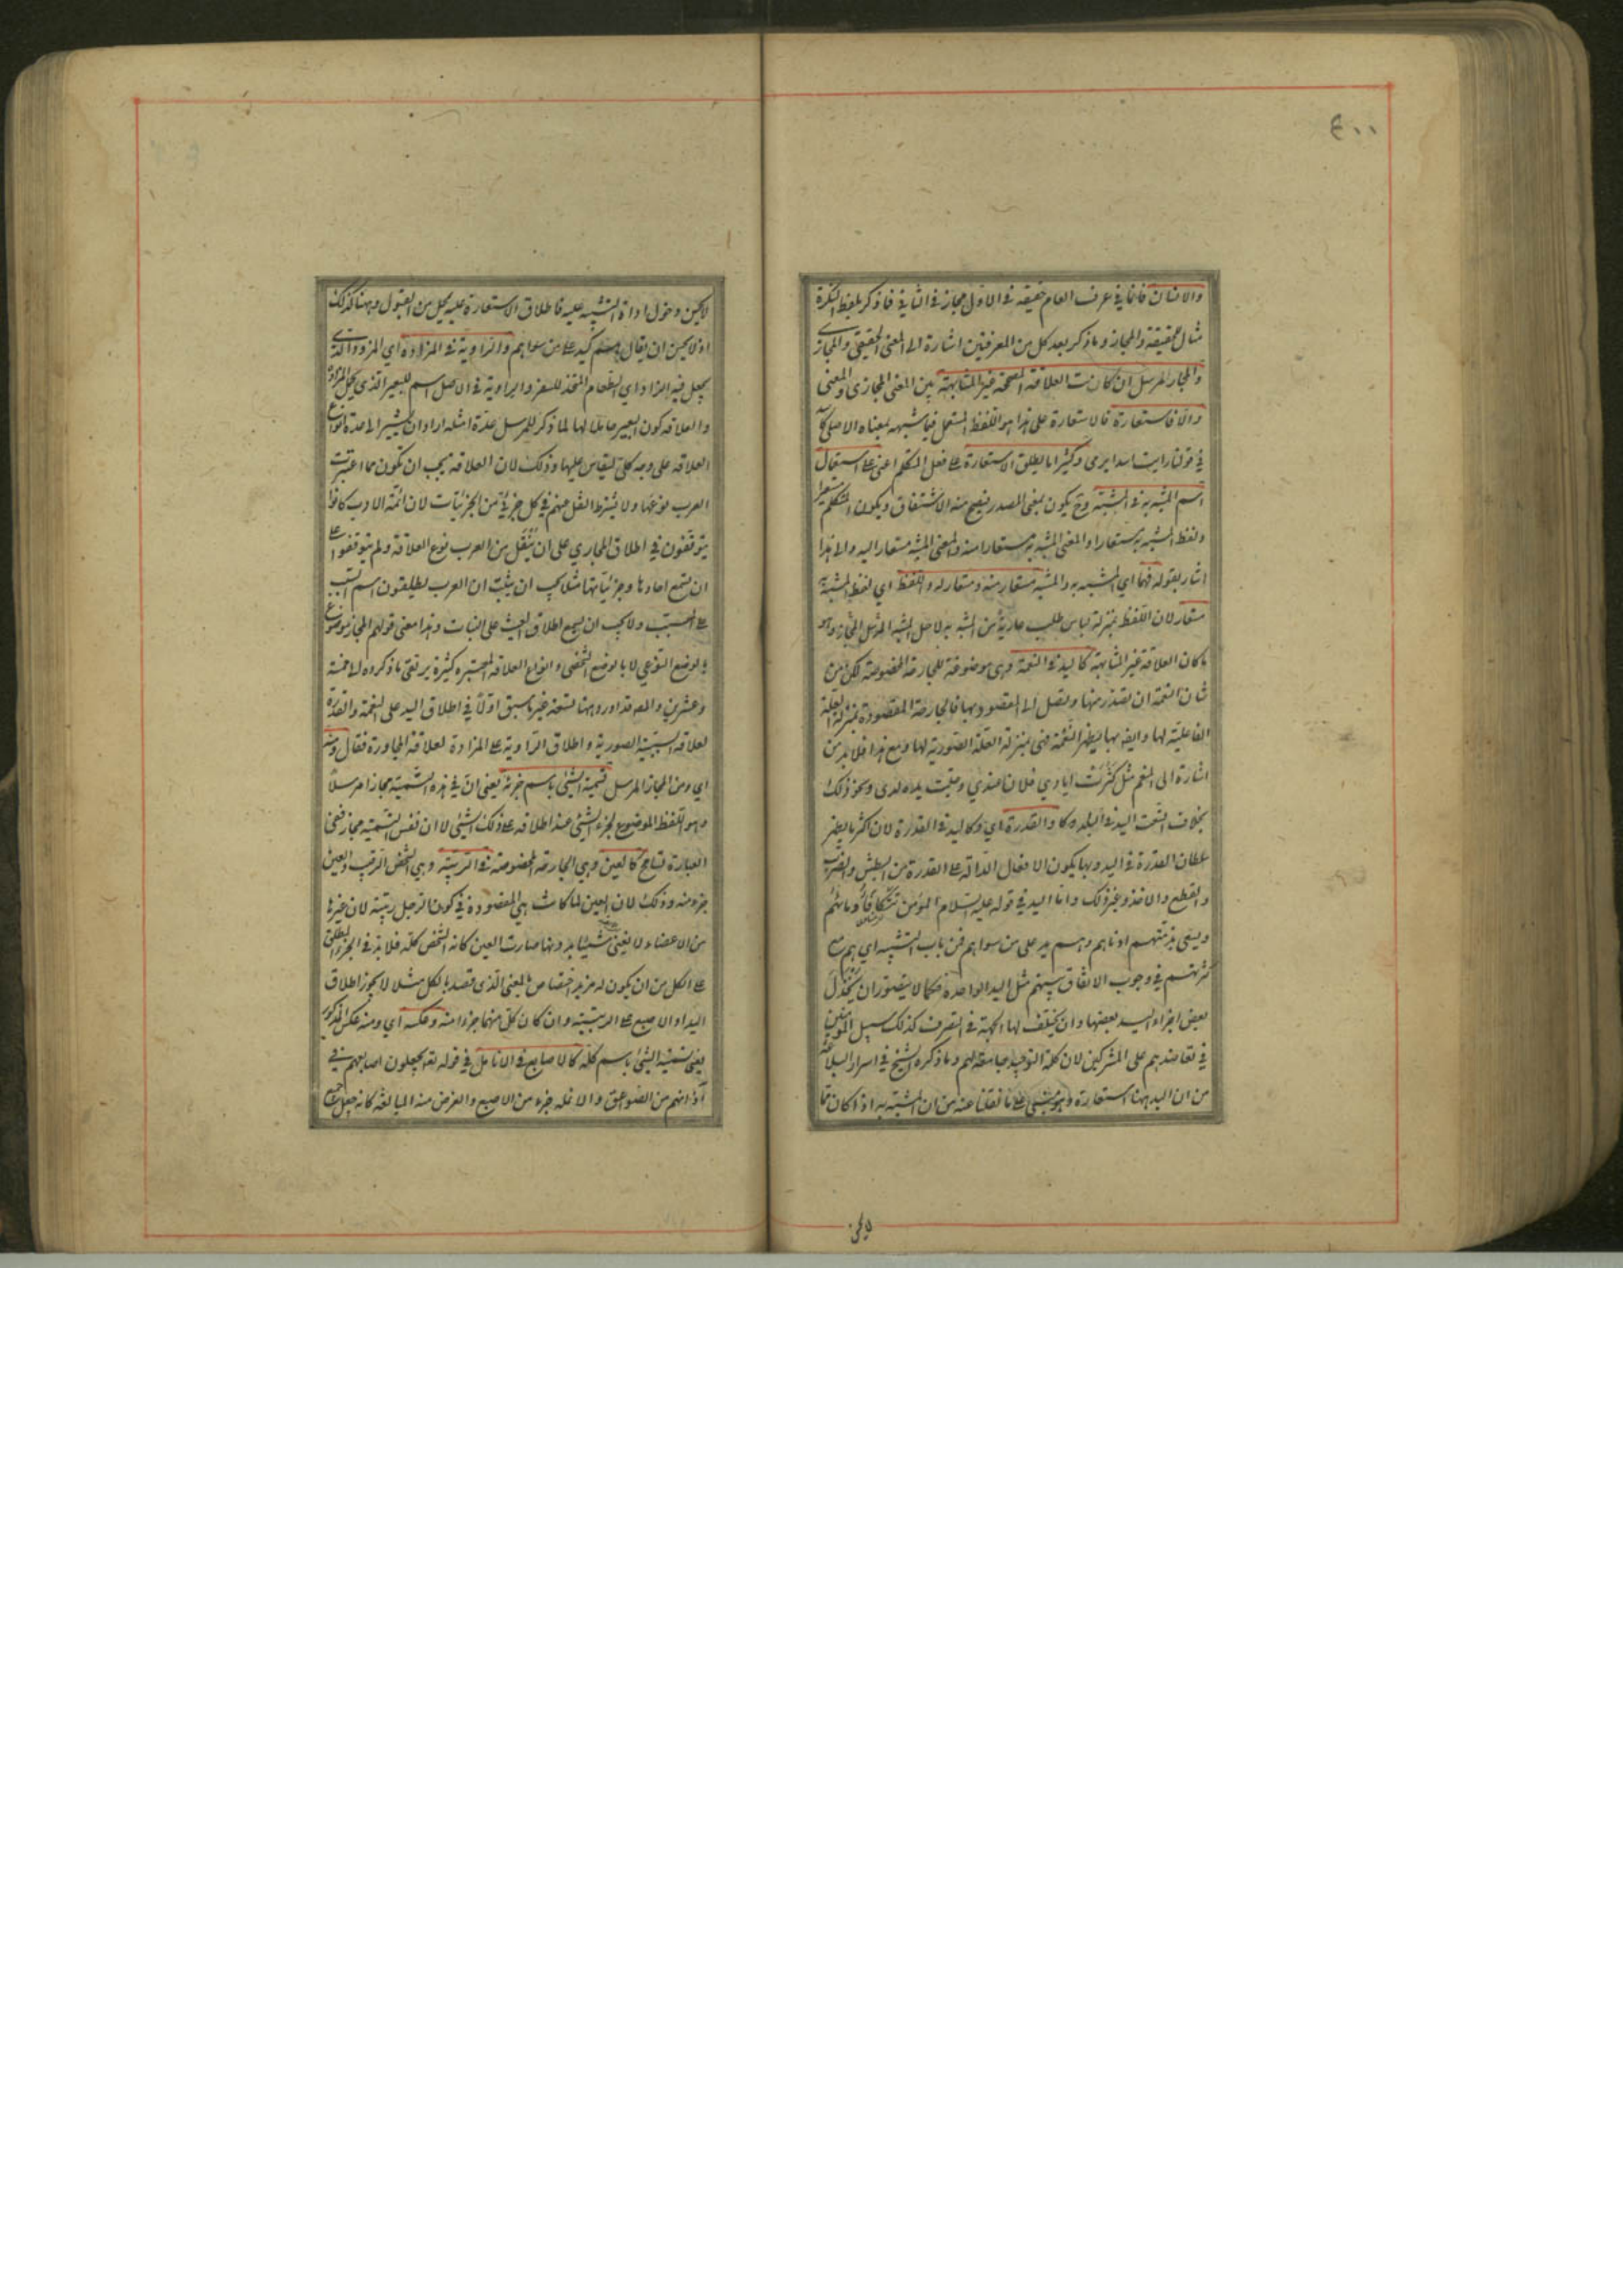 ٤٠٠
والانسان فانها في عرف العام حقيقة في الاول مجاز في الثاني فما ذكر بلفظ النكرة
مثال للحقيقة والمجاز وما ذكر بعد كل من المعرفتين اشارة الى المعنى الحقيقي والمجازي
والمجاز المرسل ان كانت العلاقة المصححة غير المشابهة بين المعنى المجازي والمعنى
والا فاستعارة فالاستعارة على هذا هو اللفظ المستعمل فيما شبه بمعناه الاصلي
في قولنا رايت اسدا يرمي وكثيرا ما يطلق الاستعارة على فعل المتكلم اعني على استعمال
اسم المشبه به في المشبه وح يكون بمعنى المصدر فيصح منه الاشتقاق ويكون المتكلم مستعيرا
ولفظ المشبه به مستعارا والمعنى المشبه به مستعارا منه والمعنى المشبه مستعارا له والى هذا
اشار بقوله فهما اي المشبه به والمشبه مستعار منه ومستعار له واللفظ اي لفظ المشبه به
مستعار لان اللفظ بمنزلة لباس طلب عارية من المشبه به لاجل المشبه المرسل المجاز وهو
ما كان العلاقة غير المشابهة كاليد في النعمة وهي موضوعة للجارحة المخصوصة لكن من
شان النعمة ان تصدر منها وتصل الى المقصود بها فالجارحة المقصودة بمنزلة العلة
الفاعلية لها وايضا بها يظهر النعمة فهي بمنزلة العلة الصورية لها ومع هذا فلا بد من
اشارة الى المنعم مثل كثرت ايادي فلان عندي وجلت يداه لدي ونحو ذلك
بخلاف اتسعت اليد في البلد وكا والقدرة اي وكاليد في القدرة لان اكثر ما يظهر
سلطان القدرة في اليد وبها يكون الافعال الدالة على القدرة من البطش والضرب
والقطع والاخذ وغير ذلك واما اليد في قوله عليه السلام المؤمنون تتكافأ دماؤهم
ويسعى بذمتهم ادناهم وهم يد على من سواهم فمن باب التشبيه اي هم مع
كثرتهم في وجوب الاتفاق بينهم مثل اليد الواحدة فكما لا يتصور ان يخذل
بعض اجزاء اليد بعضها وان يختلف بها الجهة في التصرف كذلك سبيل المؤمنين
في تعاضدهم على المشركين لان كلمة التوحيد جامعة لهم وما ذكره الشيخ في اسرار البلاغة
من ان اليد هنا استعارة فهو مبني على ما نقلنا عنه من ان المشبه به اذا كان مما
لا يحسن
لا يحسن دخول اداة التشبيه عليه فاطلاق الاستعارة عليه بمحل من القبول وههنا كذلك
اذ لا يحسن ان يقال هم كيد على من سواهم والراوية في المزادة اي المزود الذي
يجعل فيه الزاد اي الطعام المتخذ للسفر والراوية في الاصل اسم للبعير الذي يحمل المزادة
والعلاقة كون البعير حاملا لها لما ذكر للمرسل عدة امثلة اراد ان يشير الى عدة انواع
العلاقة على وجه كلي ليقاس عليها وذلك لان العلاقة يجب ان تكون مما اعتبرت
العرب نوعها ولا يشترط النقل عنهم في كل جزئي من الجزئيات لان ائمة الادب كانوا
يتوقفون في اطلاق المجازي على ان ينقل من العرب نوع العلاقة ولم يتوقفوا على
ان يسمع احادها وجزئياتها مثلا يجب ان يثبت ان العرب يطلقون اسم السبب
على المسبب ولا يجب ان يسمع اطلاق الغيث على النبات وهذا معنى قولهم المجاز موضوع
بالوضع النوعي لا بالوضع الشخصي وانواع العلاقة المعتبرة كثيرة يرتقي ما ذكروه الى خمسة
وعشرين والمص قد اورد ههنا تسعة غير ما سبق اولا في اطلاق اليد على النعمة والقدرة
لعلاقة السببية الصورية واطلاق الراوية على المزادة لعلاقة المجاورة فقال ومنه
اي ومن المجاز المرسل تسمية الشيء باسم جزئه يعني ان في هذه التسمية مجازا مرسلا
وهو اللفظ الموضوع لجزء الشيء عند اطلاقه على ذلك الشيء لا ان نفس التسمية مجاز ففي
العبارة تسامح كالعين وهي الجارحة المخصوصة في الربيئة وهي الشخص الرقيب والعين
جزء منه وذلك لان العين لما كانت هي المقصودة في كون الرجل ربيئة لان غيرها
من الاعضاء لا يغني شيئا بدونها صارت العين كانه الشخص كله فلا بد في الجزء المطلق
على الكل من ان يكون له مزيد اختصاص بالمعنى الذي قصد بالكل مثلا لا يجوز اطلاق
اليد او الاصبع على الربيئة وان كان كل منهما جزءا منه وعكسه اي ومنه عكس المذكور
يعني تسمية الشيء باسم كله كالاصابع في الانامل في قوله تعه يجعلون اصابعهم في
آذانهم من الصواعق والانملة جزء من الاصبع والغرض منه المبالغة كانه جعل جميع